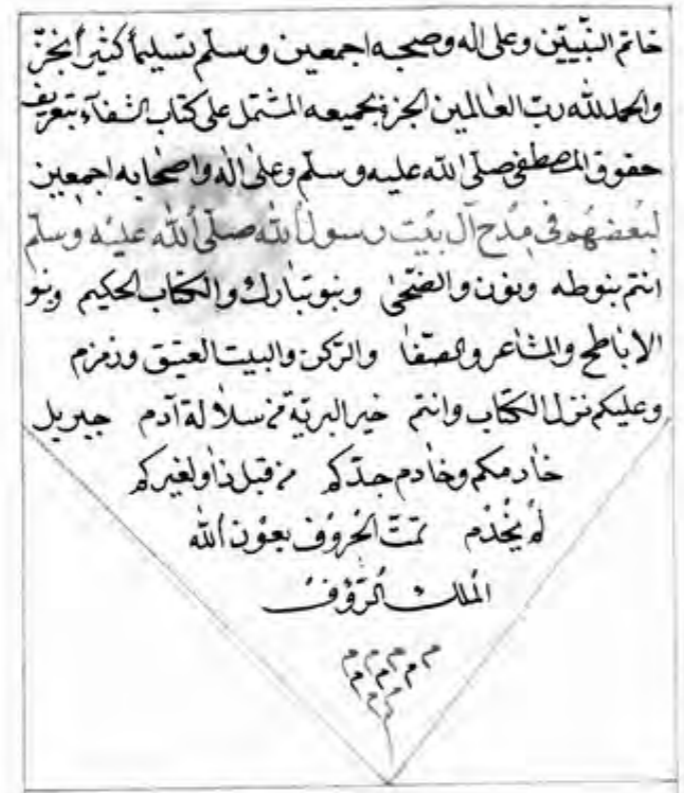 خاتم النبيّين وعلى اله وصحبه اجمعين وسلّم تسليماً كثيراً نجز
والحمد لله ربّ العالمين الجزء بجميعه المشتمل على كتاب الشفآء بتعريف
حقوق المصطفى صلّى الله عليه وسلّم وعلى اله واصحابه اجمعين
لبعضهم في مدح آل بيت رسول الله صلّى الله عليه وسلّم
انتم بنو طه ونون والضحى وبنو تبارك والكتاب الحكيم وبنو
الاباطح والمشاعر والصفا والركن والبيت العتيق وزمزم
وعليكم نزل الكتاب وانتم خير البريّة من سلالة آدم جبريل
خادمكم وخادم جدّكم من قبل ذا ولغيركم
لم يخدم تمّت الحروف بعون الله
الملك الرّؤف
م م م م
م م م
م م
م